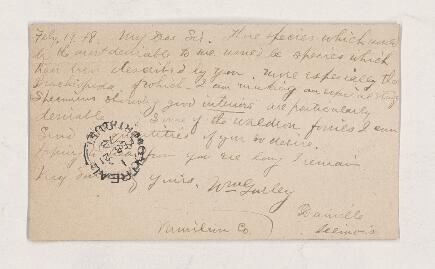 Feby 19. 78. My Dear Sir. Those species which would
be the most desirable to me would be species which
have been described by you. more especially the
Brachiopoda of which I am making an
Specimens showing good interiors are particularly
desirable. Some of the Waldron fossils I can
send quantities if you so desire.
Hoping hear from you ere long I remain
Very yours, Wm Gurley
Danville
Vermilion Co. Illinois
MONTREAL